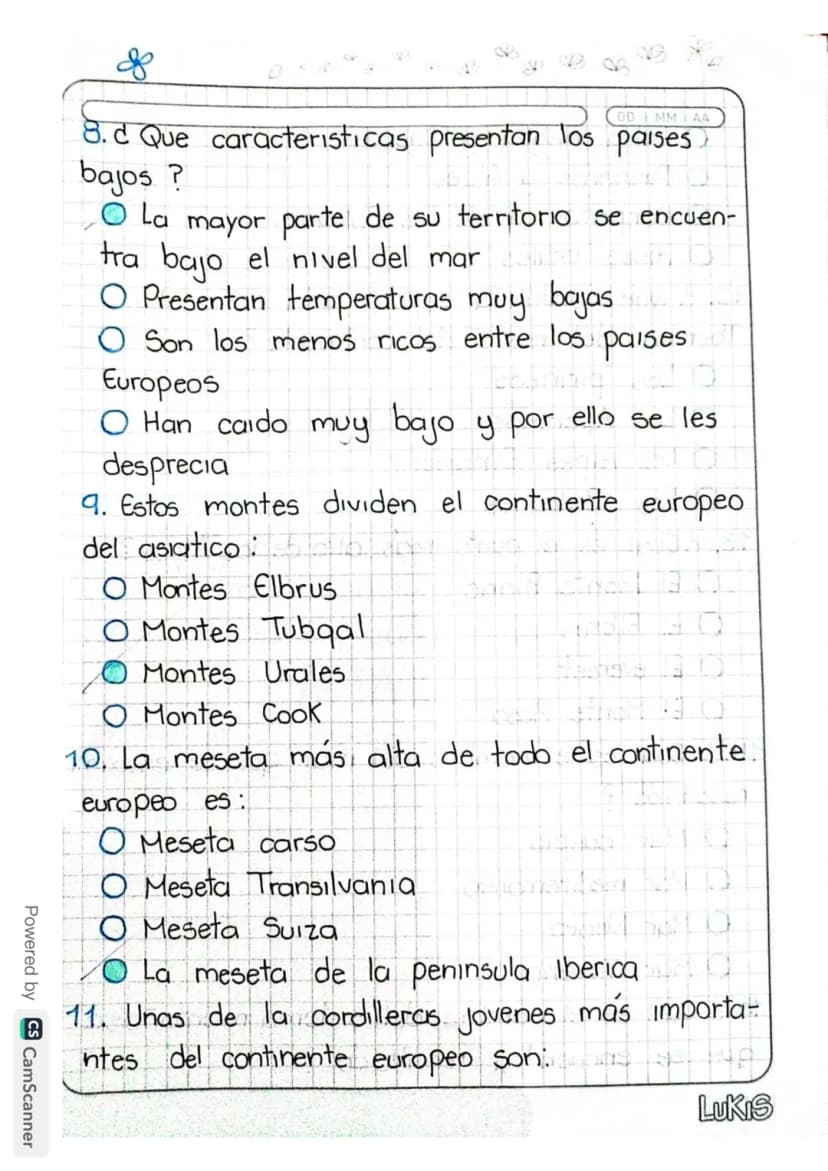 DD MM AA
8. ¿ Que caracteristicas presentan los paises
bajos ?
La mayor parte de su territorio se encuen-
tra bajo el nivel del mar
Presentan temperaturas muy bajas
Son los menos ricos entre los paises
Europeos
Han caido muy bajo y por ello se les
desprecia
9. Estos montes dividen el continente europeo
del asiatico :
Montes Elbrus
Montes Tubqal
Montes Urales
Montes Cook
10. La meseta más alta de todo el continente
europeo es :
Meseta carso
Meseta Transilvania
Meseta Suiza
La meseta de la peninsula Iberica
11. Unas de la cordilleras jovenes más importa-
ntes del continente europeo son:
LUKIS
Powered by CS CamScanner